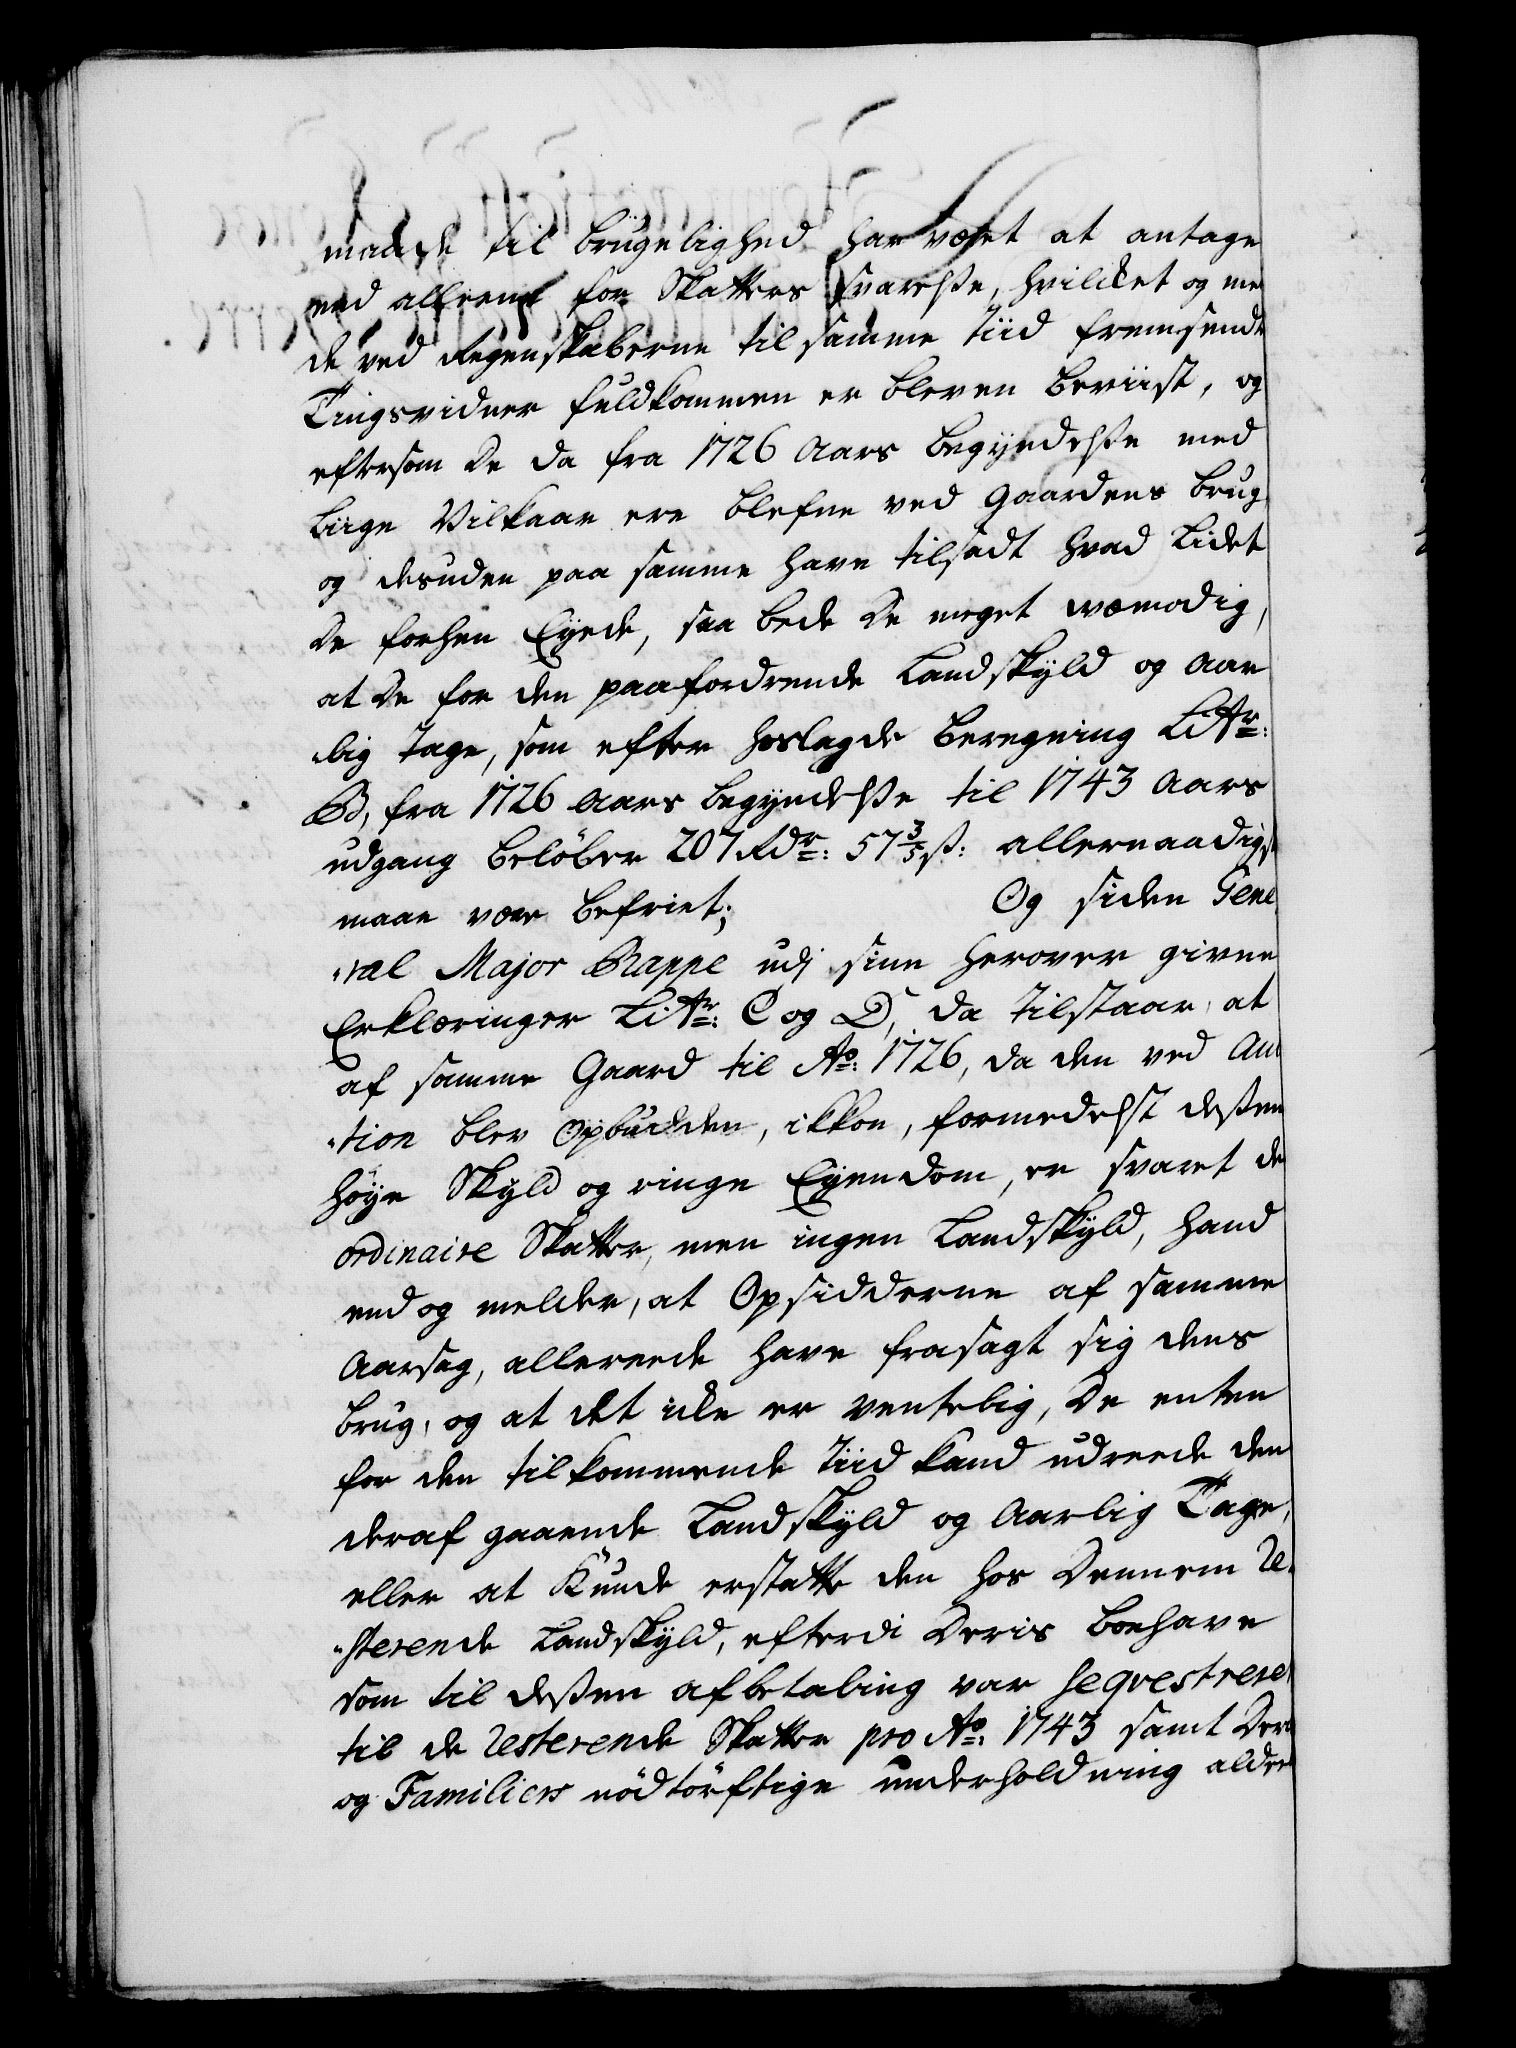 maade til brugelighed har været at antage
end alleene for Skatters svarelse, hvilcket og me
de ved Regenskaberne til samme tiid fremsende
Tingsvidner fuldkommen er bleven beviist, og
eftersom De da fra 1726 Aars begyndelse med
biige Vilkaar ere blefne ved Gaardens brug
og desuden paa samme have tilsadt hvad Lidet
De forhen Eyede, saa bede De meget wemodig,
at De for den paafordrende Landskyld og aar
lig Tage, som efter hoslagde beregning Litr:
B, fra 1726 Aars begyndelse til 1743 Aars
udgang beløber 207 Rdr: 57 3/5 ß: allernaadigst
maae være befriet; Og siden Gene
ral Major Rappe udj sine herover givne
Erklæringer Litr: C og D, da tilstaar, at
af samme Gaard til Ao: 1726, da den ved Auc
tion blev Opbudden, ikkon, formedelst deßen
høye Skyld og ringe Eyendom, er svaret de
ordinaire Skatter, men ingen Landskyld, hand
end og melder, at Opsidderne af samme
Aarsag, allereede have frasagt sig dens
brug, og at det icke er ventelig, De enten
for den tilkommende Tiid kand udreede den
deraf gaaende Landskyld og Aarlig Tage,
eller at Kunde erstatte den hos Dennem Re
sterende Landskyld, efterdi Deris boehave
som til deßen afbetaling var seqvestreret
til de Resterende Skatter pro Ao: 1743 samt Deris
og Familiers nødtørftige underholdning aldeeles